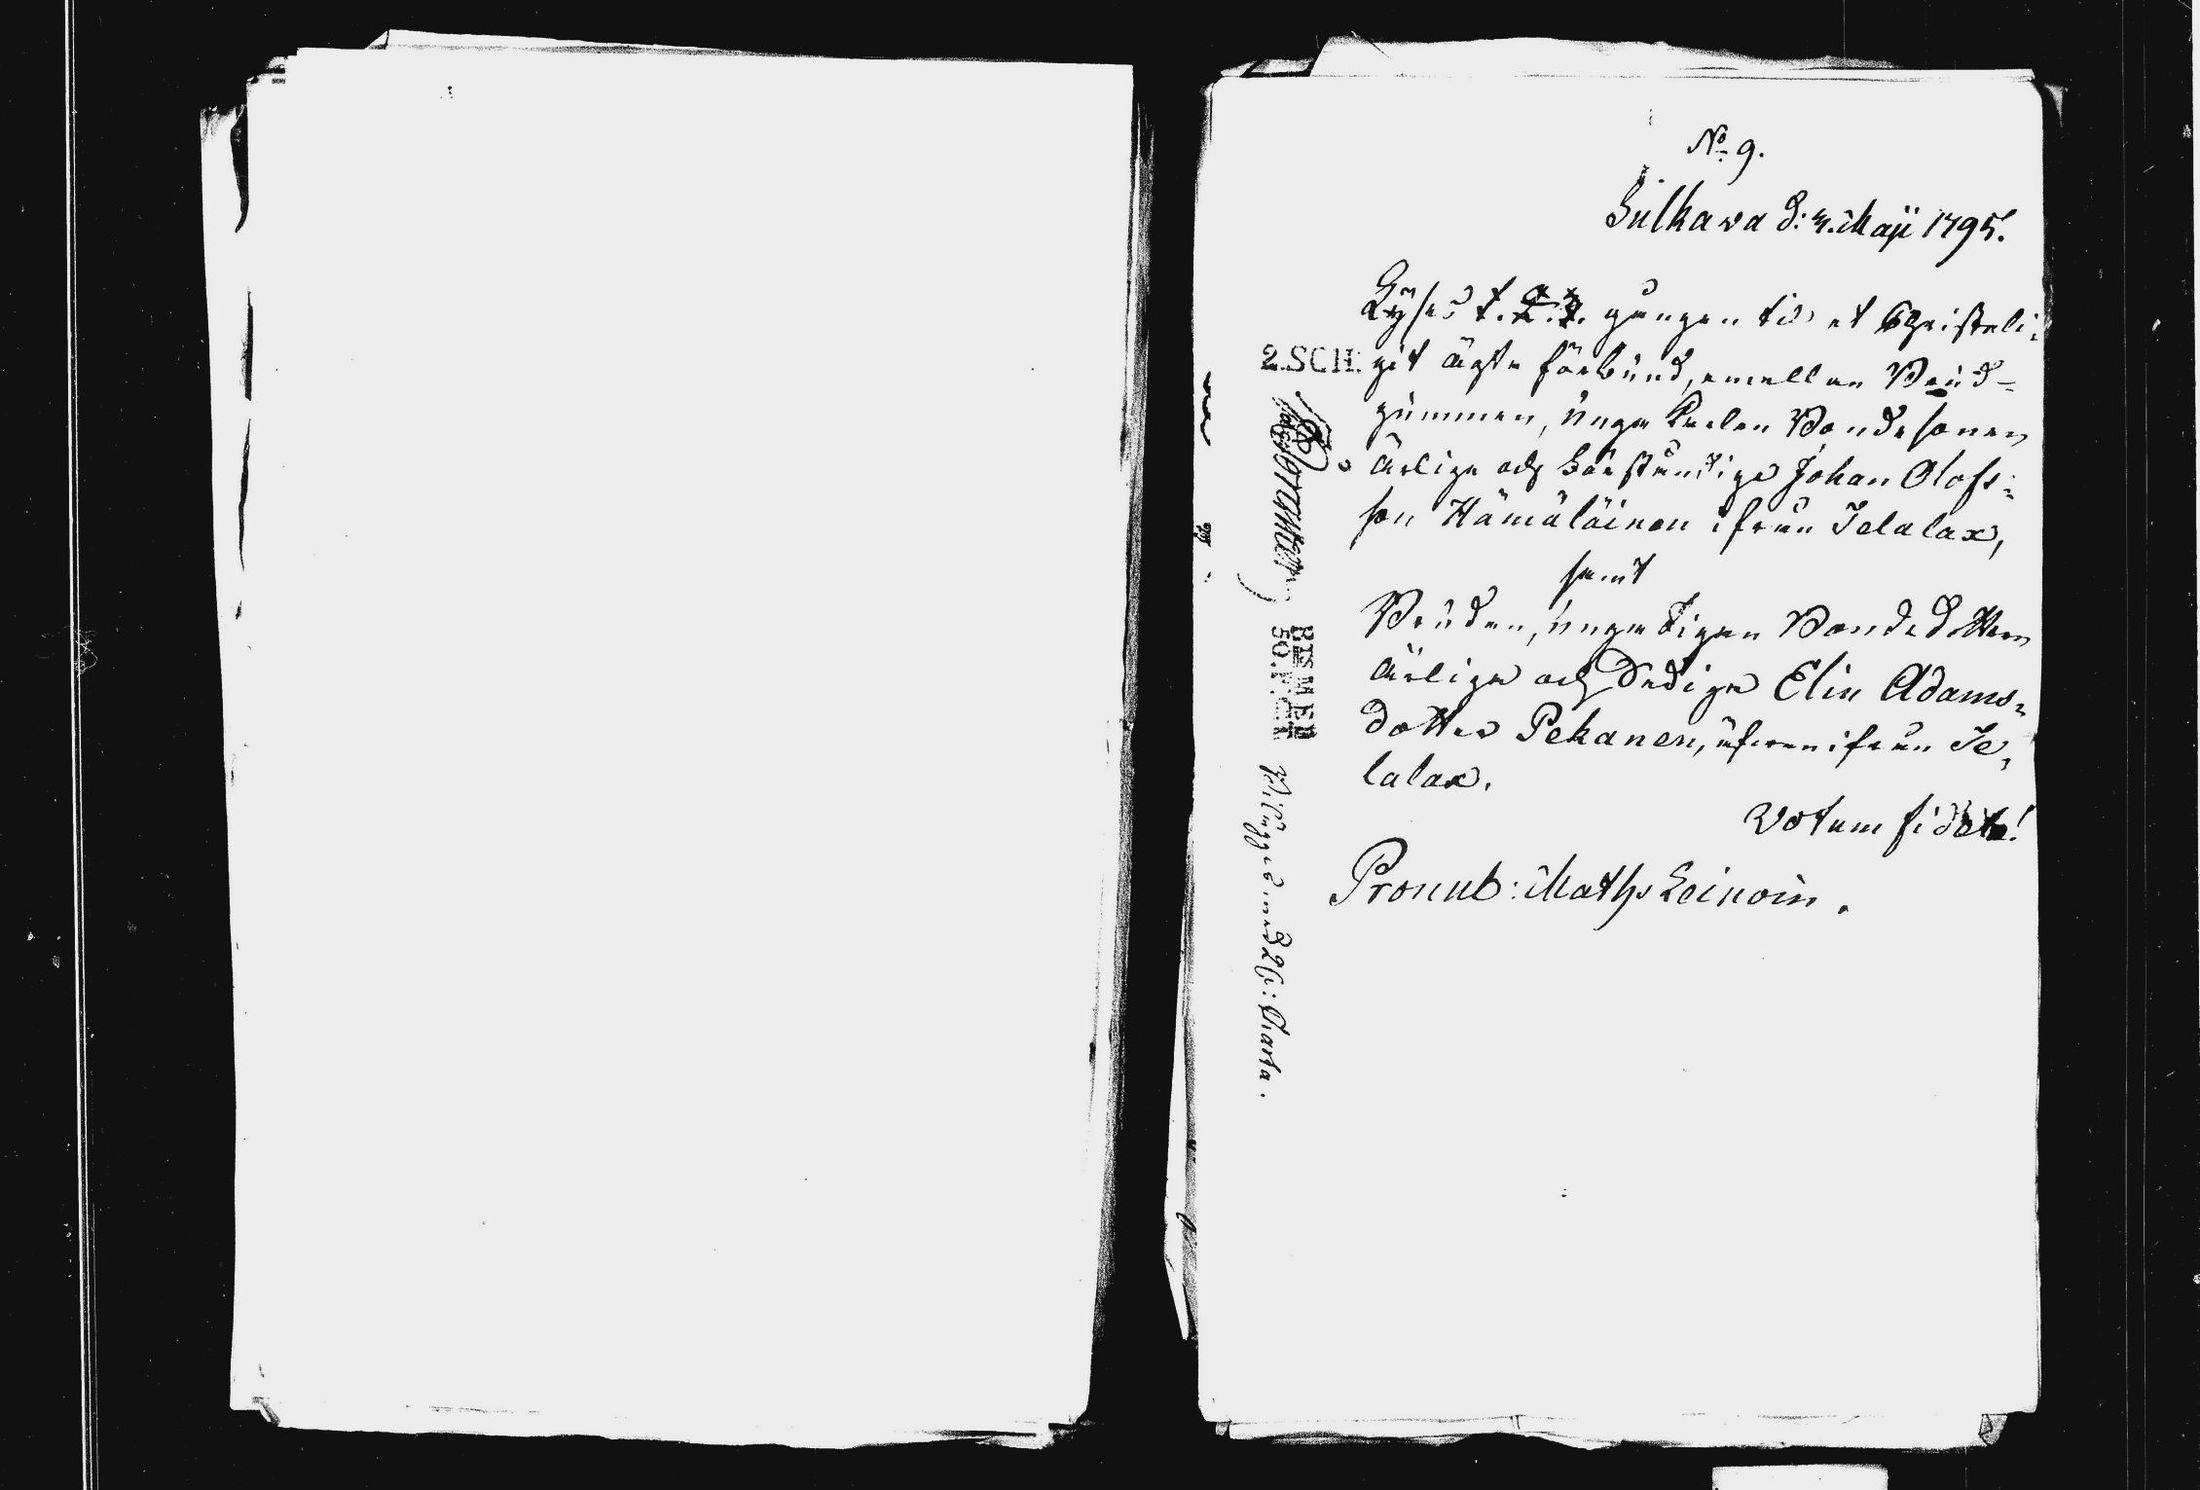 No 9.
Sulkava d: 3. Maji 1795.
Lyses 1. 2. 3. gången til et Christeli:
git ägta förbund, emellan Brud-
gummen, unga Karlen Bondesonen
ärlige och beskedelige Johan Olofs:
son Hämäläinen ifrån Telalax,
samt
Bruden, unga Pigan Bondedottren
ärliga och dediga Elin Adams:
dotter Pekanen, äfven ifrån Te:
lalax.
Votum fidele!
Pronub: Maths Leinoin.
2.SCH.
Belägges med 2 s: Charta.